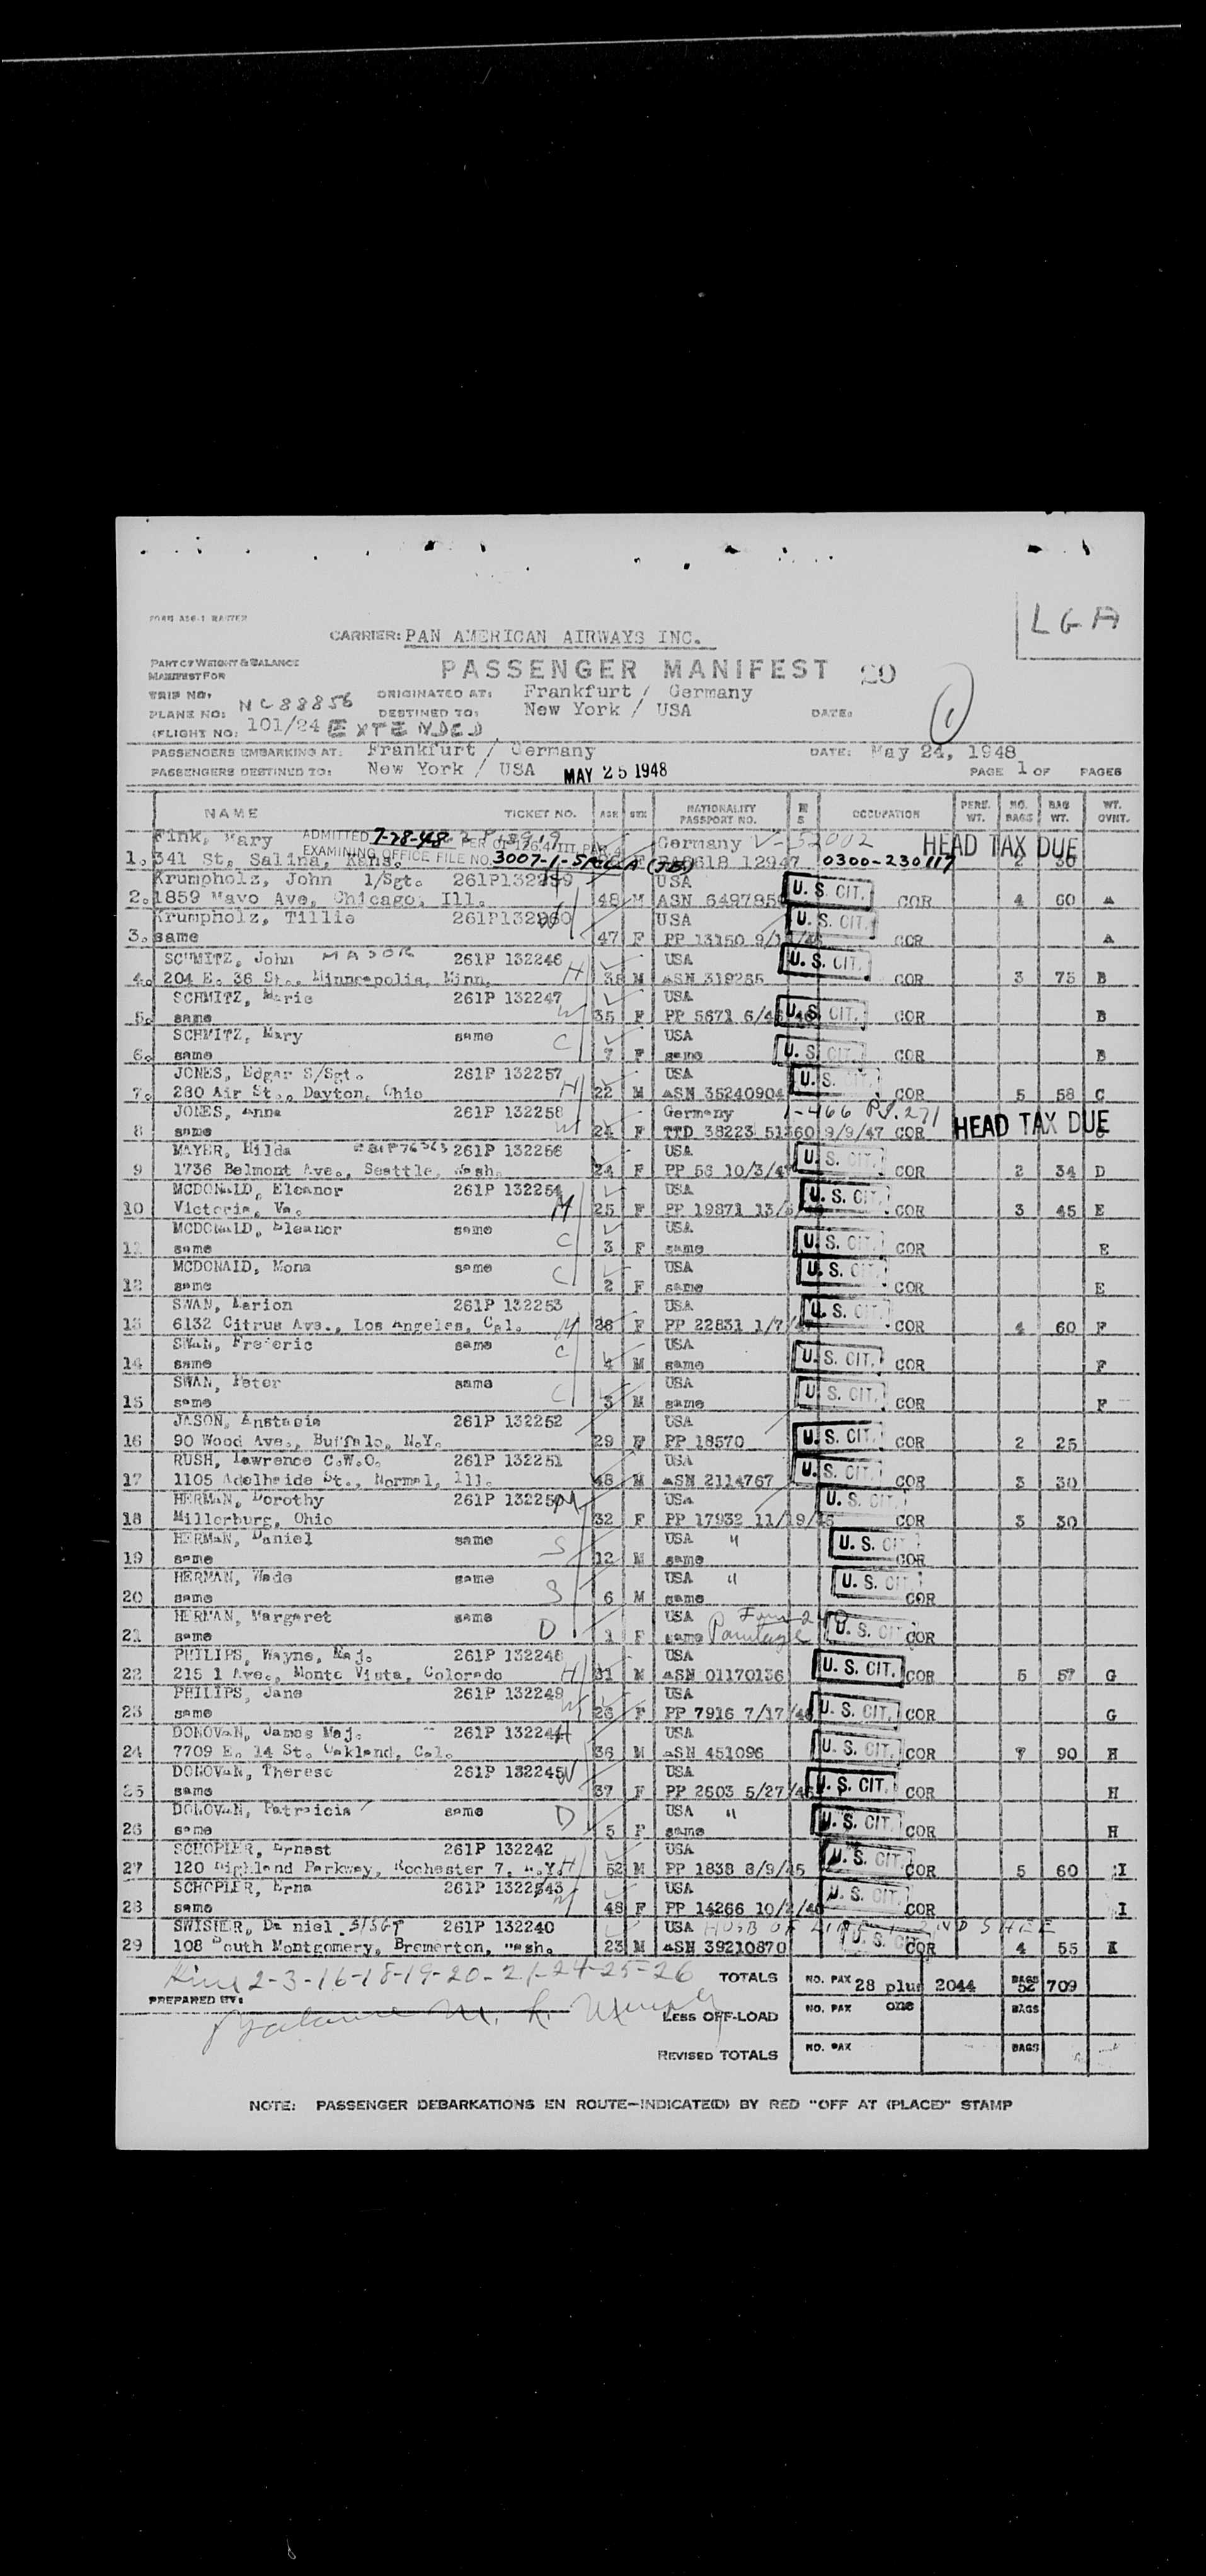 LGA
CARRIER: PAN AMERICAN AIRWAYS INC.
PART OF WEIGHT & BALANCE
MANIFEST FOR
PASSENGER MANIFEST 20
TRIP NO: NC88856 ORIGINATED AT: Frankfurt / Germany
PLANE NO: DESTINED TO: New York / USA DATE:
(FLIGHT NO: 101/24 EXTENDED
PASSENGERS EMBARKING AT: Frankfurt / Germany DATE: May 24, 1948
PASSENGERS DESTINED TO: New York / USA MAY 25 1948 PAGE 1 OF PAGES
NAME TICKET NO. AGE SEX NATIONALITY PASSPORT NO. M S OCCUPATION PERS. WT. NO. BAGS BAG WT. WT. OVNT.
Fink, Mary ADMITTED 7-28-48 PER Germany V-52002 HEAD TAX DUE
1. 341 St, Salina, Kans. EXAMINING OFFICE FILE NO. 3007-1- 12947 0300-230117 2 30
Krumpholz, John 1/Sgt. USA U. S. CIT.
2. 1859 Mayo Ave, Chicago, Ill. 48 M ASN COR 4 60 A
Krumpholz, Tillie USA U. S. CIT.
3. same 47 F PP 13150 COR A
SCHMITZ, John MAJOR 261P 132246 USA U. S. CIT.
4. 204 E. 36 St., Minneapolis, Minn. H 38 M ASN 319285 COR 3 75 B
SCHMITZ, Marie 261P 132247 USA
5. same W 35 F PP 5671 U. S. CIT. COR B
SCHMITZ, Mary same C USA
6. same 7 F same U. S. CIT. COR B
JONES, Edgar S/Sgt. 261P 132257 USA U. S. CIT.
7. 280 Air St., Dayton, Ohio H 22 M ASN 35240904 COR 5 58 C
JONES, Anna 261P 132258 Germany
8 same W 24 F TTD 38223 9/9/47 COR HEAD TAX DUE
MAYER, Hilda 261P 132256 USA U. S. CIT.
9 1736 Belmont Ave., Seattle, Wash. 24 F PP 56 COR 2 34 D
MCDONALD, Eleanor 261P 132254 USA U. S. CIT.
10 Victoria, Va. M 25 F PP 19871 COR 3 45 E
MCDONALD, Eleanor same USA
11 same C 3 F same U. S. CIT. COR E
MCDONALD, Mona same USA U. S. CIT.
12 same C 2 F same COR E
SWAN, Marion 261P 132253 USA U. S. CIT.
13 6132 Citrus Ave., Los Angeles, Cal. M 26 F PP 22831 COR 4 60 F
SWAN, Frederic same C USA
14 same 4 M same U. S. CIT. COR F
SWAN, Peter same USA
15 same C 3 M same U. S. CIT. COR F
JASON, Anstasia 261P 132252 USA
16 90 Wood Ave., Buffalo, N.Y. 29 F PP 18570 U. S. CIT. COR 2 25
RUSH, Lawrence C.W.O. 261P 132251 USA U. S. CIT.
17 1105 Adelheide St., Normal, Ill. 48 M ASN 2114767 COR 3 30
HERMAN, Dorothy 261P 132250 M USA U. S. CIT.
18 Millerburg, Ohio 32 F PP 17932 COR 3 30
HERMAN, Daniel same USA " U. S. CIT.
19 same S 12 M same COR
HERMAN, Wade same USA " U. S. CIT.
20 same S 6 M same COR
HERMAN, Margaret same USA
21 same D 1 F same U. S. CIT. COR
PHILIPS, Wayne, Maj. 261P 132248 USA
22 215 1 Ave., Monte Vista, Colorado H 31 M ASN 01170136 U. S. CIT. COR 5 57 G
PHILIPS, Jane 261P 132249 USA
23 same W 26 F PP 7916 U. S. CIT. COR G
DONOVAN, James Maj. 261P 132244 H USA
24 7709 E. 14 St. Oakland, Cal. 36 M ASN 451096 U. S. CIT. COR 7 90 H
DONOVAN, Therese 261P 132245 W USA
25 same 37 F PP 2603 U. S. CIT. COR H
DONOVAN, Patraicia same D USA "
26 same 5 F same U. S. CIT. COR H
SCHOPLER, Ernest 261P 132242 USA
27 120 Highland Parkway, Rochester 7, N.Y. H 52 M PP 1838 U. S. CIT. COR 5 60 I
SCHOPLER, Erna USA
28 same W 48 F PP 14266 U. S. CIT. COR I
SWISHER, Da niel S/SGT 261P 132240 USA
29 108 South Montgomery, Bremerton, Wash. 23 M ASN 39210870 U. S. CIT. COR 4 55 K
Line 2-3-16-18-19-20-21-24-25-26 TOTALS NO. PAX 28 plus 2044 BAGS 52 709
PREPARED BY: LESS OFF-LOAD NO. PAX one BAGS
REVISED TOTALS NO. PAX BAGS
NOTE: PASSENGER DEBARKATIONS EN ROUTE—INDICATE(D) BY RED "OFF AT (PLACE)" STAMP